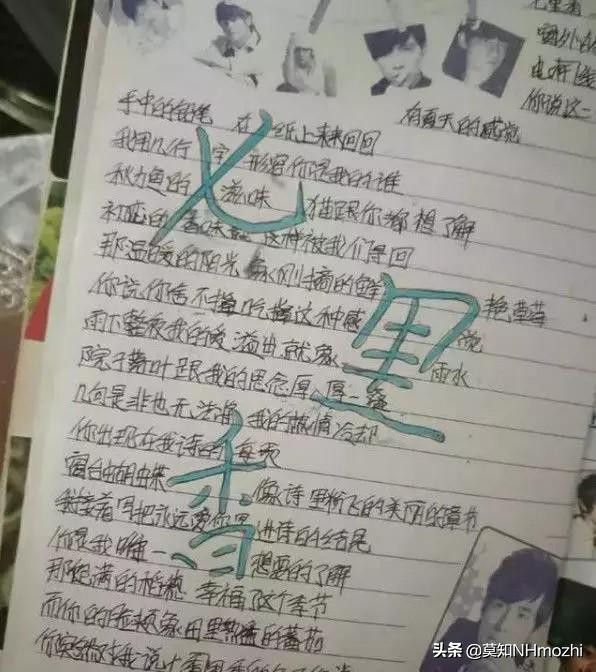 窗外的
你说这一
有夏天的感觉
手中的铅笔 在纸上来来回回
我用几行字形容你是我的谁
秋刀鱼的 滋味 猫跟你都想了解
初恋的香味就这样被我们寻回
那温暖的阳光 象刚摘的鲜艳草莓
你说你舍不得吃掉这种感觉
雨下整夜我的爱溢出就象雨水
院子落叶跟我的思念厚厚一叠
几句是非也无法将我的热情冷却
你出现在我诗的每页
窗台蝴蝶 像诗里纷飞的美丽的章节
我接着写把永远爱你写进诗的结尾
你是我唯一想要的了解
那饱满的稻穗 幸福了这个季节
而你的脸颊象田里熟透的番茄
你突然对我说七里香的名字
七里香
头条 @莫知NHmozhi